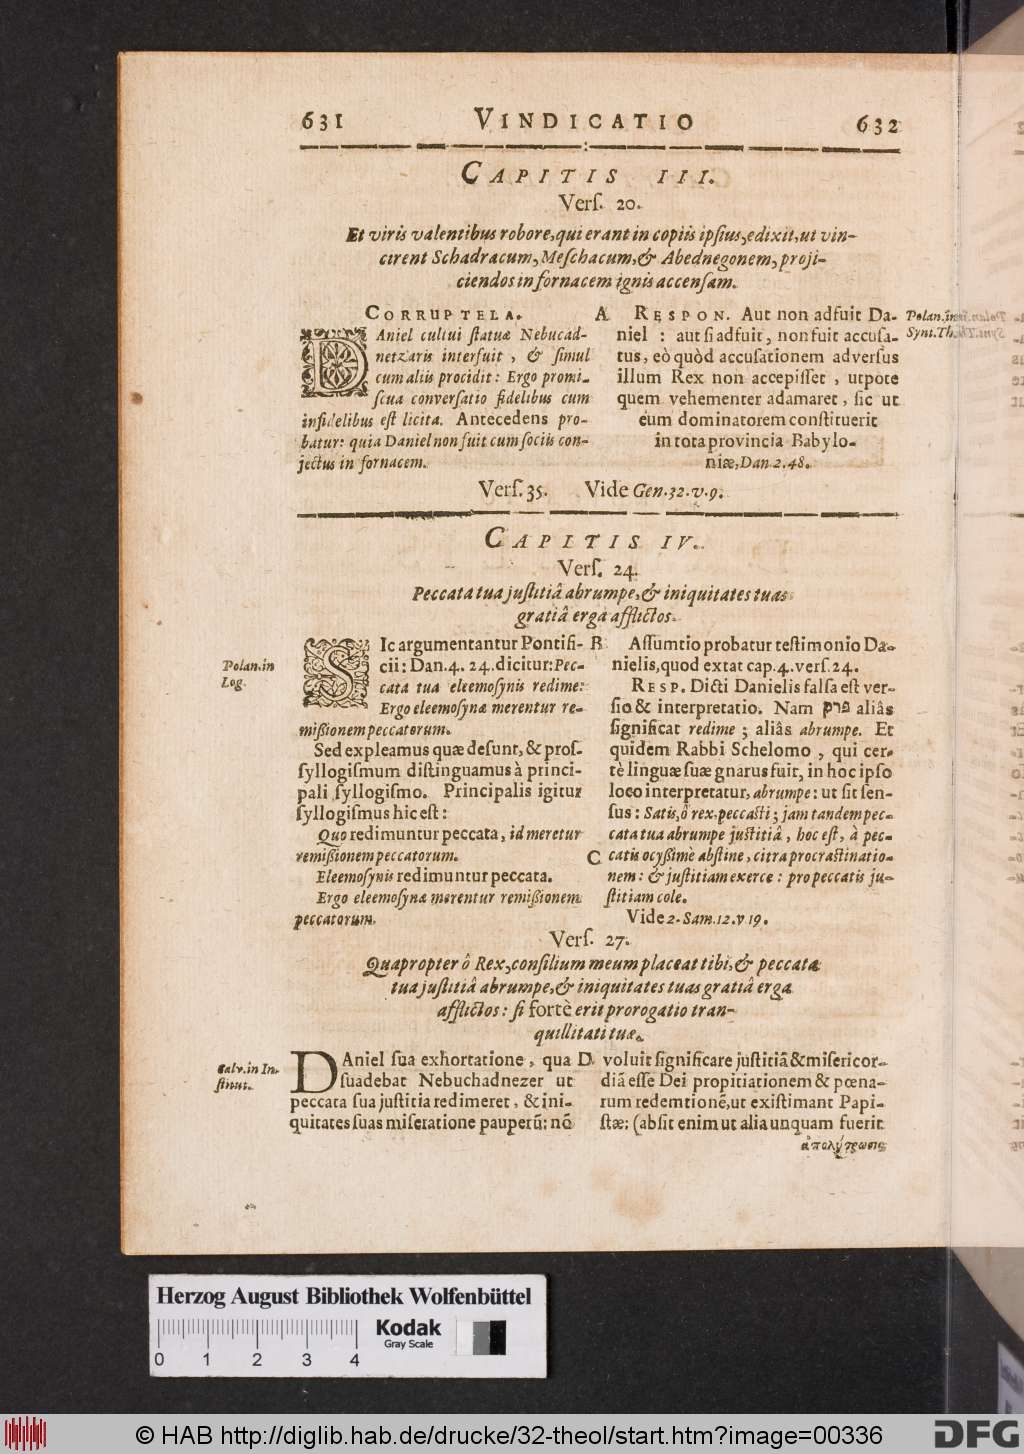 631 VINDICATIO 632
CAPITIS III.
Verſ. 20.
Et viris valentibus robore, qui erant in copiis ipſius, edixit, ut vin-
cirent Schadracum, Meſchacum, & Abednegonem, proji-
ciendos in fornacem ignis accenſam.
CORRUPTELA.
DAniel cultui ſtatuæ Nebucad-
netzaris interfuit, & ſimul
cum aliis procidit: Ergo promi-
ſcua converſatio fidelibus cum
infidelibus eſt licita. Antecedens pro-
batur: quia Daniel non fuit cum ſociis con-
jectus in fornacem.
A RESPON. Aut non adfuit Da-
niel : aut ſi adfuit, non fuit accuſa-
tus, eò quòd accuſationem adverſus
illum Rex non accepiſſet, utpote
quem vehementer adamaret, ſic ut
eum dominatorem conſtituerit
in tota provincia Babylo-
niæ, Dan. 2. 48.
Polan. in
Synt. Th.
Verſ. 35. Vide Gen. 32. v. 9.
CAPITIS IV.
Verſ. 24.
Peccata tua juſtitiâ abrumpe, & iniquitates tuas
gratiâ erga afflictos.
Polan. in
Log.
SIc argumentantur Pontifi-
cii: Dan. 4. 24. dicitur: Pec-
cata tua eleemoſynis redime:
Ergo eleemoſynæ merentur re-
miſsionem peccatorum.
Sed expleamus quæ deſunt, & proſ-
ſyllogiſmum diſtinguamus à princi-
pali ſyllogiſmo. Principalis igitur
ſyllogiſmus hic eſt:
Quo redimuntur peccata, id meretur
remiſsionem peccatorum.
Eleemoſynis redimuntur peccata.
Ergo eleemoſynæ merentur remiſsionem
peccatorum.
B Aſſumtio probatur teſtimonio Da-
nielis, quod extat cap. 4. verſ. 24.
RESP. Dicti Danielis falſa eſt ver-
ſio & interpretatio. Nam פרק aliâs
ſignificat redime ; aliâs abrumpe. Et
quidem Rabbi Schelomo, qui cer-
tè linguæ ſuæ gnarus fuit, in hoc ipſo
loco interpretatur, abrumpe: ut ſit ſen-
ſus: Satis, ô rex, peccaſti; jam tandem pec-
cata tua abrumpe juſtitiâ, hoc eſt, à pec-
C catis ocyſsimè abſtine, citra procraſtinatio-
nem: & juſtitiam exerce: pro peccatis ju-
ſtitiam cole.
Vide 2. Sam. 12. v 19.
Verſ. 27.
Quapropter ô Rex, conſilium meum placeat tibi, & peccata
tua juſtitiâ abrumpe, & iniquitates tuas gratiâ erga
afflictos: ſi fortè erit prorogatio tran-
quillitati tuæ.
Calv. in In-
ſtitut.
DAniel ſua exhortatione, qua
ſuadebat Nebuchadnezer ut
peccata ſua juſtitia redimeret, & ini-
quitates ſuas miſeratione pauperũ: nõ
D voluit ſignificare juſtitiã & miſericor-
diã eſſe Dei propitiationem & pœna-
rum redemtionẽ, ut exiſtimant Papi-
ſtæ: (abſit enim ut alia unquam fuerit
ἀπολύτρωσις
Herzog August Bibliothek Wolfenbüttel
Kodak
Gray Scale
0 1 2 3 4
© HAB http://diglib.hab.de/drucke/32-theol/start.htm?image=00336
DFG